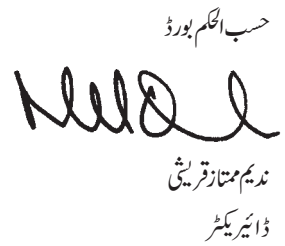 حسب الحکم بورڈ
ندیم ممتاز قریشی
ڈائیریکٹر